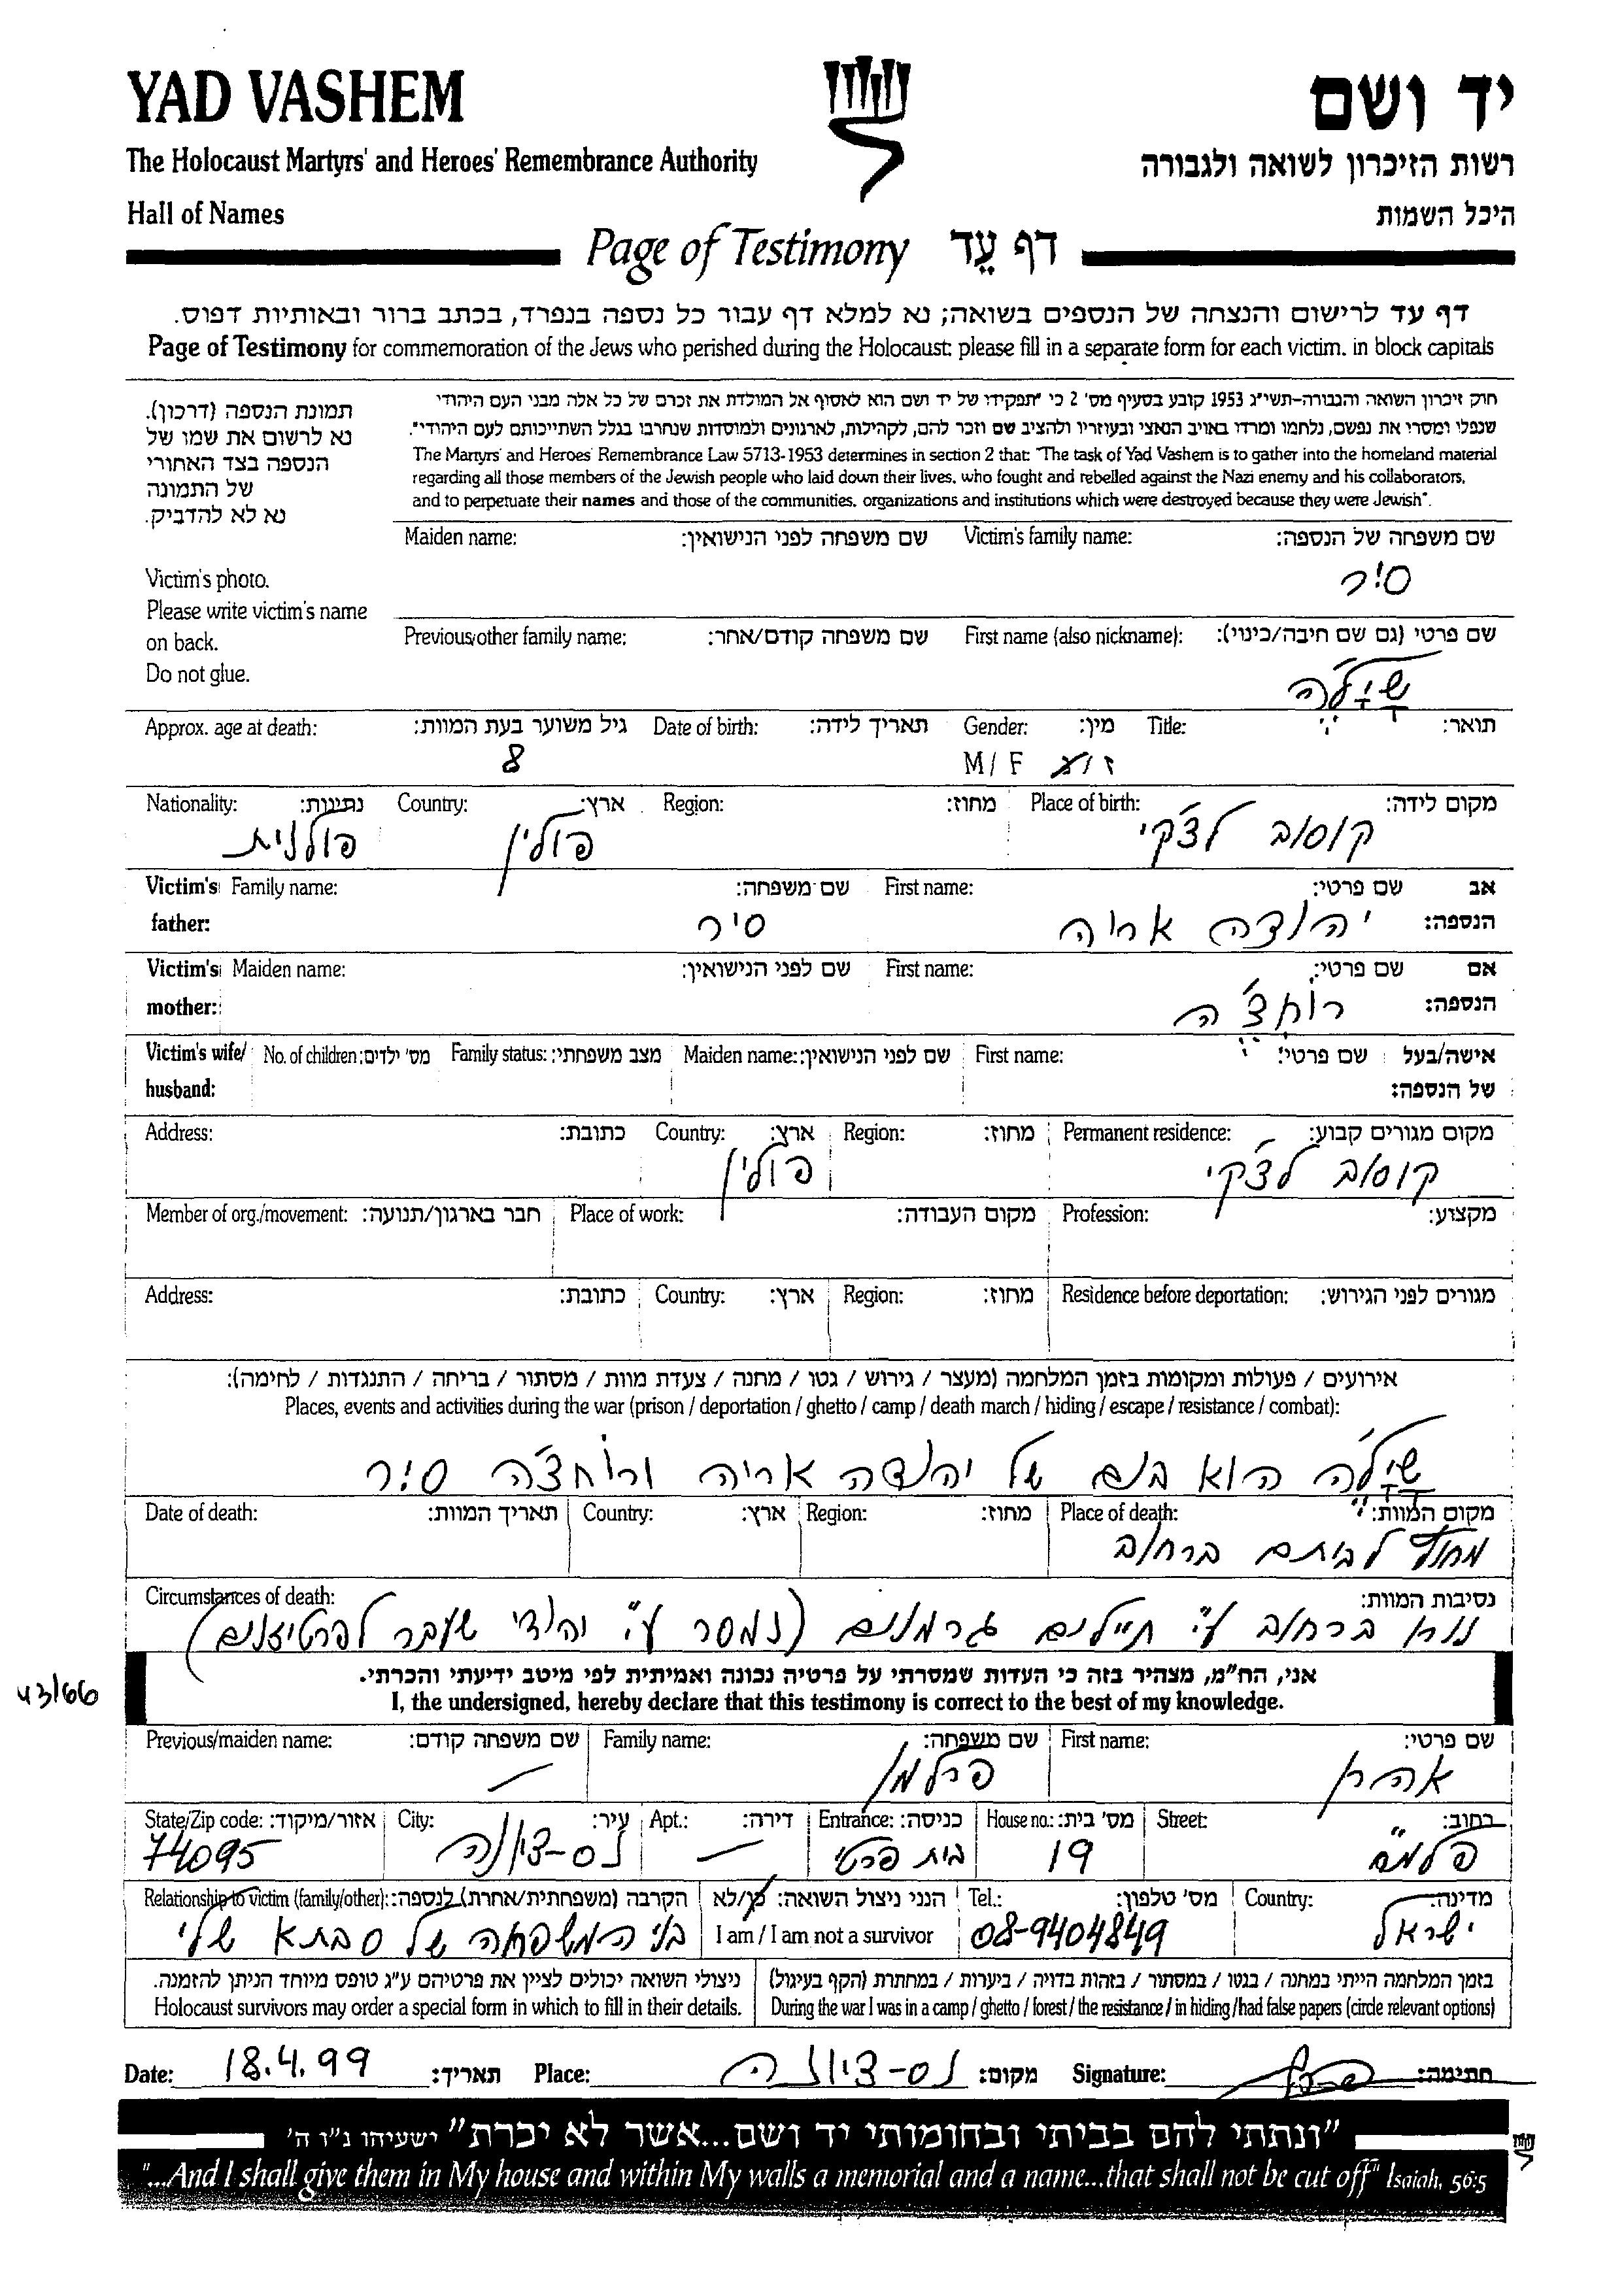 YAD VASHEM
יד ושם
The Holocaust Martyrs' and Heroes' Remembrance Authority
רשות הזיכרון לשואה ולגבורה
Hall of Names
היכל השמות
Page of Testimony דף עֵד
דף עד לרישום והנצחה של הנספים בשואה; נא למלא דף עבור כל נספה בנפרד, בכתב ברור ובאותיות דפוס.
Page of Testimony for commemoration of the Jews who perished during the Holocaust: please fill in a separate form for each victim. in block capitals
תמונת הנספה (דרכון).
נא לרשום את שמו של
הנספה בצד האחורי
של התמונה
נא לא להדביק.
Victim's photo.
Please write victim's name
on back.
Do not glue.
חוק זיכרון השואה והגבורה–תשי"ג 1953 קובע בסעיף מס' 2 כי "תפקידו של יד ושם הוא לאסוף אל המולדת את זכרם של כל אלה מבני העם היהודי
שנפלו ומסרו את נפשם, נלחמו ומרדו באויב הנאצי ובעוזריו ולהציב שם וזכר להם, לקהילות, לארגונים ולמוסדות שנחרבו בגלל השתייכותם לעם היהודי".
The Martyrs' and Heroes' Remembrance Law 5713-1953 determines in section 2 that: "The task of Yad Vashem is to gather into the homeland material
regarding all those members of the Jewish people who laid down their lives, who fought and rebelled against the Nazi enemy and his collaborators,
and to perpetuate their names and those of the communities, organizations and institutions which were destroyed because they were Jewish".
Maiden name: שם משפחה לפני הנישואין: Victim's family name: שם משפחה של הנספה:
סיר
Previous/other family name: שם משפחה קודם/אחר: First name (also nickname): שם פרטי (גם שם חיבה/כינוי):
שילה
Approx. age at death: גיל משוער בעת המוות: Date of birth: תאריך לידה: Gender: מין: Title: תואר:
8 M / F ז
Nationality: נתינות: Country: ארץ: Region: מחוז: Place of birth: מקום לידה:
פולנית פולין קוסוב לצקי
Victim's Family name: שם משפחה: First name: שם פרטי: אב
father: סיר יהודה אריה הנספה:
Victim's Maiden name: שם לפני הנישואין: First name: שם פרטי: אם
mother: רוחצ'ה הנספה:
Victim's wife/ No. of children: מס' ילדים: Family status: מצב משפחתי: Maiden name: שם לפני הנישואין: First name: שם פרטי: אישה/בעל
husband: של הנספה:
Address: כתובת: Country: ארץ: Region: מחוז: Permanent residence: מקום מגורים קבוע:
פולין קוסוב לצקי
Member of org./movement: חבר בארגון/תנועה: Place of work: מקום העבודה: Profession: מקצוע:
Address: כתובת: Country: ארץ: Region: מחוז: Residence before deportation: מגורים לפני הגירוש:
אירועים / פעולות ומקומות בזמן המלחמה (מעצר / גירוש / גטו / מחנה / צעדת מוות / מסתור / בריחה / התנגדות / לחימה):
Places, events and activities during the war (prison / deportation / ghetto / camp / death march / hiding / escape / resistance / combat):
שילה הוא בנם של יהודה אריה ורוחצ'ה סיר
Date of death: תאריך המוות: Country: ארץ: Region: מחוז: Place of death: מקום המוות:
מחוץ לביתם ברחוב
Circumstances of death: נסיבות המוות:
נורה ברחוב ע"י חיילים גרמנים (נמסר ע"י יהודי שעבר לפרטיזנים)
אני, הח"מ, מצהיר בזה כי העדות שמסרתי על פרטיה נכונה ואמיתית לפי מיטב ידיעתי והכרתי.
I, the undersigned, hereby declare that this testimony is correct to the best of my knowledge.
43/66
Previous/maiden name: שם משפחה קודם: Family name: שם משפחה: First name: שם פרטי:
— פרלמן אהרן
State/Zip code: אזור/מיקוד: City: עיר: Apt.: דירה: Entrance: כניסה: House no.: מס' בית: Street: רחוב:
74095 נס-ציונה — בית פרטי 19 פלמ"ח
Relationship to victim (family/other): הקרבה (משפחתית/אחרת) לנספה: הנני ניצול השואה: כן/לא Tel.: מס' טלפון: Country: מדינה:
בני המשפחה של סבתא שלי I am / I am not a survivor 08-9404849 ישראל
ניצולי השואה יכולים לציין את פרטיהם ע"ג טופס מיוחד הניתן להזמנה.
Holocaust survivors may order a special form in which to fill in their details.
בזמן המלחמה הייתי במחנה / בגטו / במסתור / בזהות בדויה / ביערות / במחתרת (הקף בעיגול)
During the war I was in a camp / ghetto / forest / the resistance / in hiding / had false papers (circle relevant options)
Date: 18.4.99 תאריך: Place: נס-ציונה מקום: Signature: חתימה:
"ונתתי להם בביתי ובחומותי יד ושם...אשר לא יכרת" ישעיהו נ"ו ה'
"...And I shall give them in My house and within My walls a memorial and a name...that shall not be cut off" Isaiah, 56:5